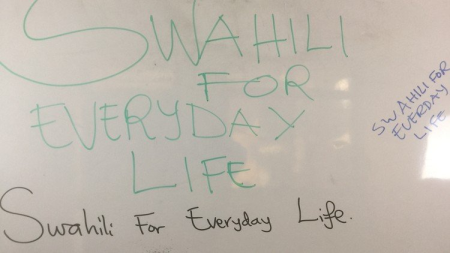 SWAHILI
FOR
EVERYDAY
LIFE
Swahili For Everyday Life.
SWAHILI FOR
EVERDAY
LIFE